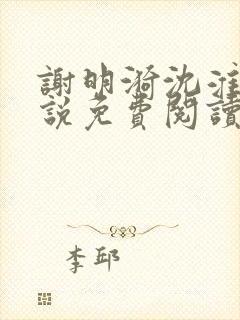 謝明漪沈淮
說免費閱讀
李邱